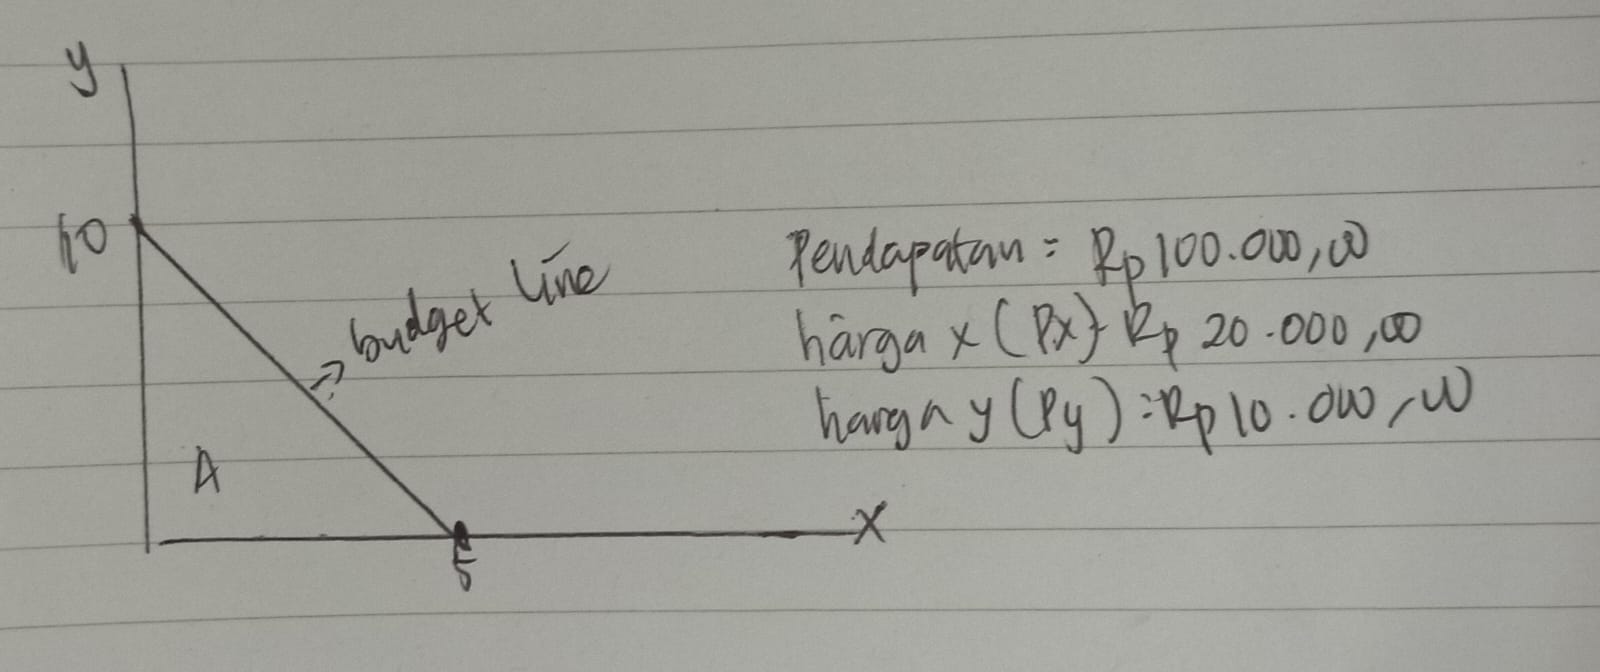 y
10
budget line
A
5
X
Pendapatan = Rp 100.000,00
harga x (Px) = Rp 20.000,00
harga y (Py) = Rp 10.000,00